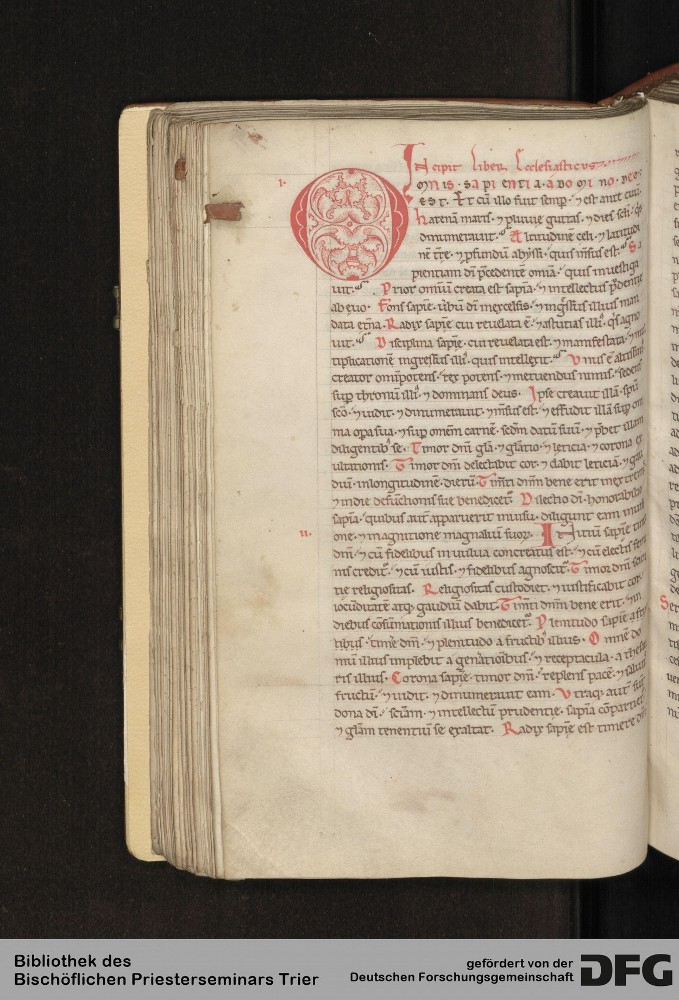 I.
Incipit liber Ecclesiasticus
OMNIS SAPIENTIA A DOMINO DEO
EST. Et cū illo fuit semp. ⁊ est ante euū.
Harenā maris. ⁊ pluuie guttas. ⁊ dies scłi. q̇s
dinumerauit. Altitudinē celi. ⁊ latitudi
nē tr̄e. ⁊ ꝓfundū abyssi. quis mensus est. Sa
pientiam dī p̄cedentē omīa. quis inuestiga
uit. Prior omniū creata est sapīa. ⁊ intellectus prudentie
ab euo. Fons sapīe. ubū dī in excelsis. ⁊ ingssus illius man
data etna. Radix sapīe cui reuelata ē. ⁊ astutias illi. q̇s agno
uit. Disciplina sapīe. cui reuelata est. ⁊ manifestata. ⁊ mul
tiplicationē ingressus illi. quis intellexit. Unus ē altissim
creator omīpotens. rex potens. ⁊ metuendus nimis. sedens
sup thronū illi. ⁊ dominans deus. Ipse creauit illā. spū
scō. ⁊ uidit. ⁊ dinumerauit. ⁊ mensus est. ⁊ effudit illā sup om
nia opa sua. ⁊ sup omēm carnē. scdm datū suū. ⁊ p̄bet illam
diligentib; se. Timor dnī gła. ⁊ głatio. ⁊ leticia. ⁊ corona ex
ultationis. Timor dnī delectabit cor. ⁊ dabit leticiā. ⁊ gau
diū. in longitudinē dierū. Timīti dnm bene erit in extremis
⁊ in die defunctionis sue benedicet. Dilectio dī. honorabilis
sapīa. quibus aut apparuerit in uisu. diligunt eam in uisi
II.
one. ⁊ in agnitione magnaliū suoꝝ. Initium sapīe timor
dnī. ⁊ cū fidelibus in uulua concreatus est. ⁊ cū electis femi
nis credit. ⁊ cū iustis. ⁊ fidelibus agnoscit. Timor dnī scien
tie religiositas. Religiositas custodiet. ⁊ iustificabit cor.
iocūditatē atq; gaudiū dabit. Timīti dnm bene erit. ⁊ in
diebus cōsūmationis illius benedicet. Plenitudo sapīe
timē dnī. ⁊ plenitudo a fructib; illius. Omnē do
mū illius implebit a genātionibus. ⁊ receptacula. a thesau
ris illius. Corona sapīe. timor dnī. replens pacē. ⁊ salutis
fructū. ⁊ uidit. ⁊ dinumerauit eam. Utraq; aut sunt
dona dī. Sciam. ⁊ intellectū prudentie. sapīa cōpartiet.
⁊ głam tenentiū se exaltat. Radix sapīe est timere dnm
Bibliothek des
Bischöflichen Priesterseminars Trier
gefördert von der
Deutschen Forschungsgemeinschaft
DFG